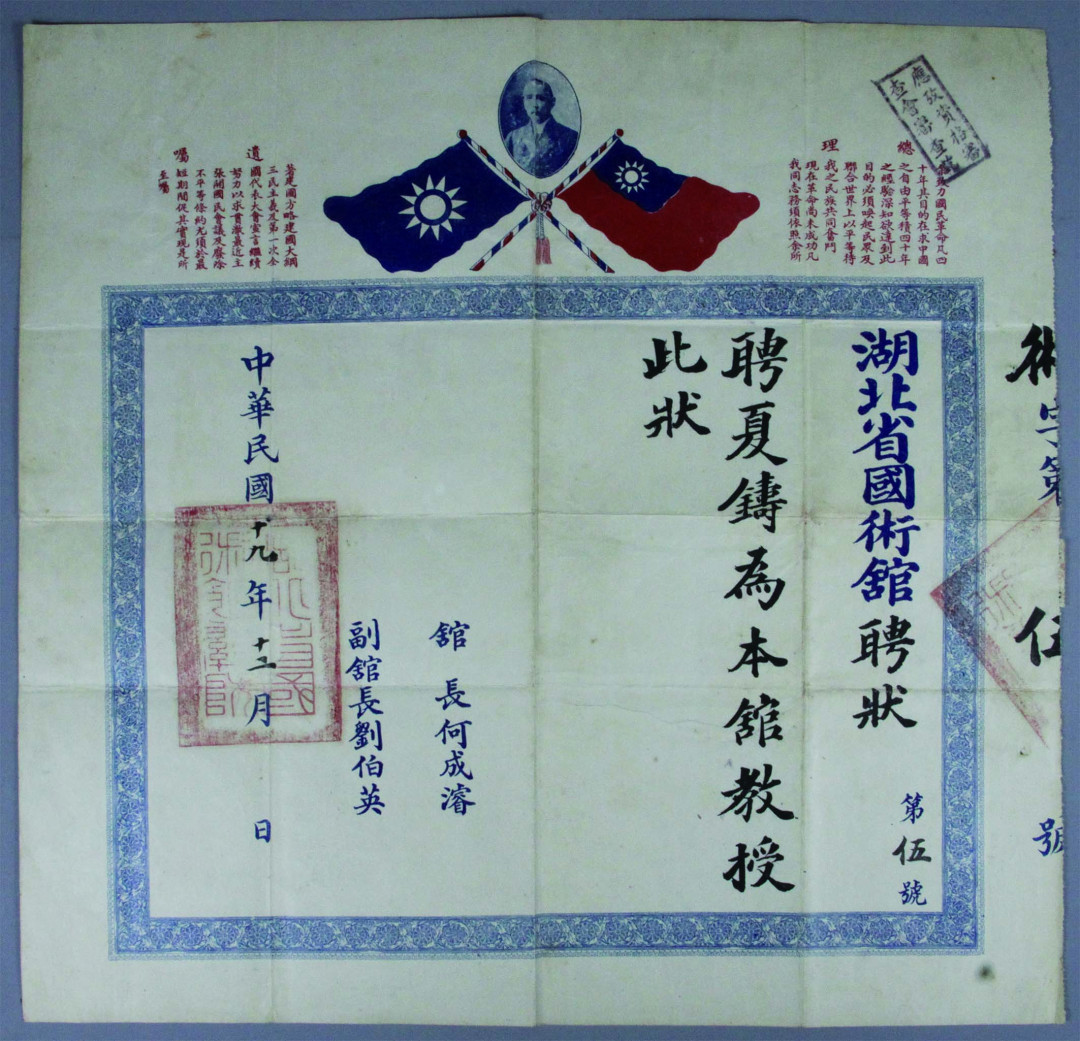 術字第伍號
應攷資格審
查會審查
總理遺囑
力國民革命凡四
十年其目的在求中國
之自由平等積四十年
之經驗深知欲達到此
目的必須喚起民眾及
聯合世界上以平等待
我之民族共同奮鬥
現在革命尚未成功凡
我同志務須依照余所
著建國方略建國大綱
三民主義及第一次全
國代表大會宣言繼續
努力以求貫澈最近主
張開國民會議及廢除
不平等條約尤須於最
短期間促其實現是所
至囑
湖北省國術舘聘狀
第伍號
聘夏鑄為本舘教授
此狀
舘長何成濬
副舘長劉伯英
中華民國十九年十二月 日